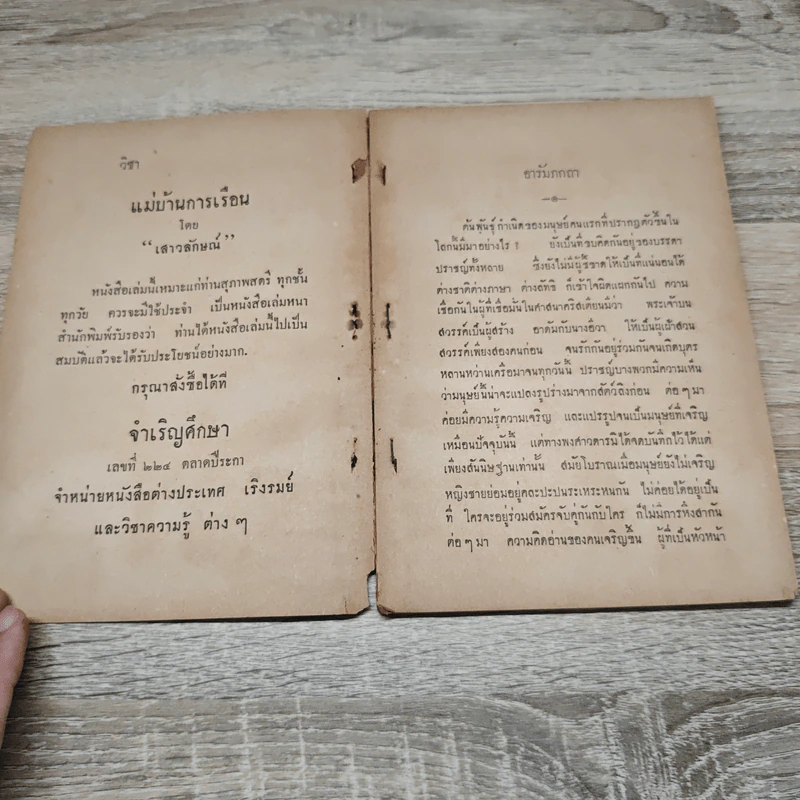 วิชา
แม่บ้านการเรือน
โดย
“เสาวลักษณ์”
หนังสือเล่มนี้เหมาะแก่ท่านสุภาพสตรี ทุกชั้น
ทุกวัย ควรจะมีใช้ประจำ เป็นหนังสือเล่มหนา
สำนักพิมพ์รับรองว่า ท่านได้หนังสือเล่มนี้ไปเป็น
สมบัติแล้วจะได้รับประโยชน์อย่างมาก.
กรุณาสั่งซื้อได้ที่
จำเริญศึกษา
เลขที่ ๒๒๔ ตลาดปีระกา
จำหน่ายหนังสือต่างประเทศ เริงรมย์
และวิชาความรู้ ต่าง ๆ
อารัมภกถา
ต้นพันธุ์กำเนิดของมนุษย์คนแรกที่ปรากฏตัวขึ้นใน
โลกนี้มีมาอย่างไร ? ยังเป็นที่ขบคิดกันอยู่ของบรรดา
ปราชญ์ทั้งหลาย ซึ่งยังไม่มีผู้ชี้ขาดให้เป็นที่แน่นอนได้
ต่างชาติต่างภาษา ต่างลัทธิ ก็เข้าใจผิดแผกกันไป ความ
เชื่อกันในผู้ที่เชื่อมั่นในศาสนาคริสเตียนมีว่า พระเจ้าบน
สวรรค์เป็นผู้สร้าง อาดัมกับนางอีวา ให้เป็นผู้เฝ้าสวน
สวรรค์เพียงสองคนก่อน จนรักกันอยู่ร่วมกันจนเกิดบุตร
หลานหว่านเครือมาจนทุกวันนี้ ปราชญ์บางพวกมีความเห็น
ว่ามนุษย์นี้น่าจะแปลงรูปร่างมาจากสัตว์ลิงก่อน ต่อ ๆ มา
ค่อยมีความรู้ความเจริญ และแปรรูปจนเป็นมนุษย์ที่เจริญ
เหมือนปัจจุบันนี้ แต่ทางพงศาวดารมิได้จดบันทึกไว้ได้แต่
เพียงสันนิษฐานเท่านั้น สมัยโบราณเมื่อมนุษย์ยังไม่เจริญ
หญิงชายย่อมอยู่คละปะปนระเหระหนกัน ไม่ค่อยได้อยู่เป็น
ที่ ใครจะอยู่ร่วมสมัครจับคู่กันกับใคร ก็ไม่มีการหึงสากัน
ต่อ ๆ มา ความคิดอ่านของคนเจริญขึ้น ผู้ที่เป็นหัวหน้า